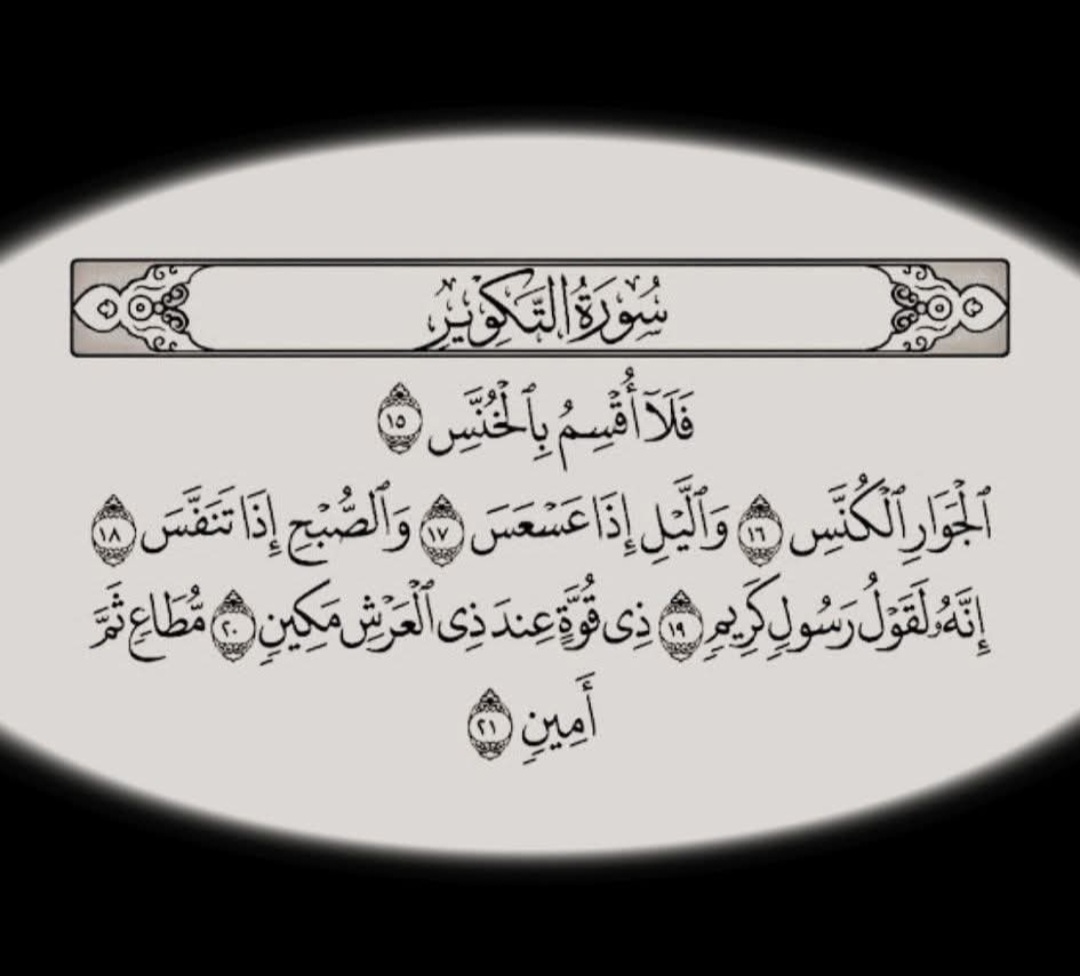 سُورَةُ التَّكْوِيرِ
فَلَآ أُقْسِمُ بِٱلْخُنَّسِ ١٥
ٱلْجَوَارِ ٱلْكُنَّسِ ١٦ وَٱلَّيْلِ إِذَا عَسْعَسَ ١٧ وَٱلصُّبْحِ إِذَا تَنَفَّسَ ١٨
إِنَّهُۥ لَقَوْلُ رَسُولٍ كَرِيمٍ ١٩ ذِى قُوَّةٍ عِندَ ذِى ٱلْعَرْشِ مَكِينٍ ٢٠ مُّطَاعٍ ثَمَّ
أَمِينٍ ٢١